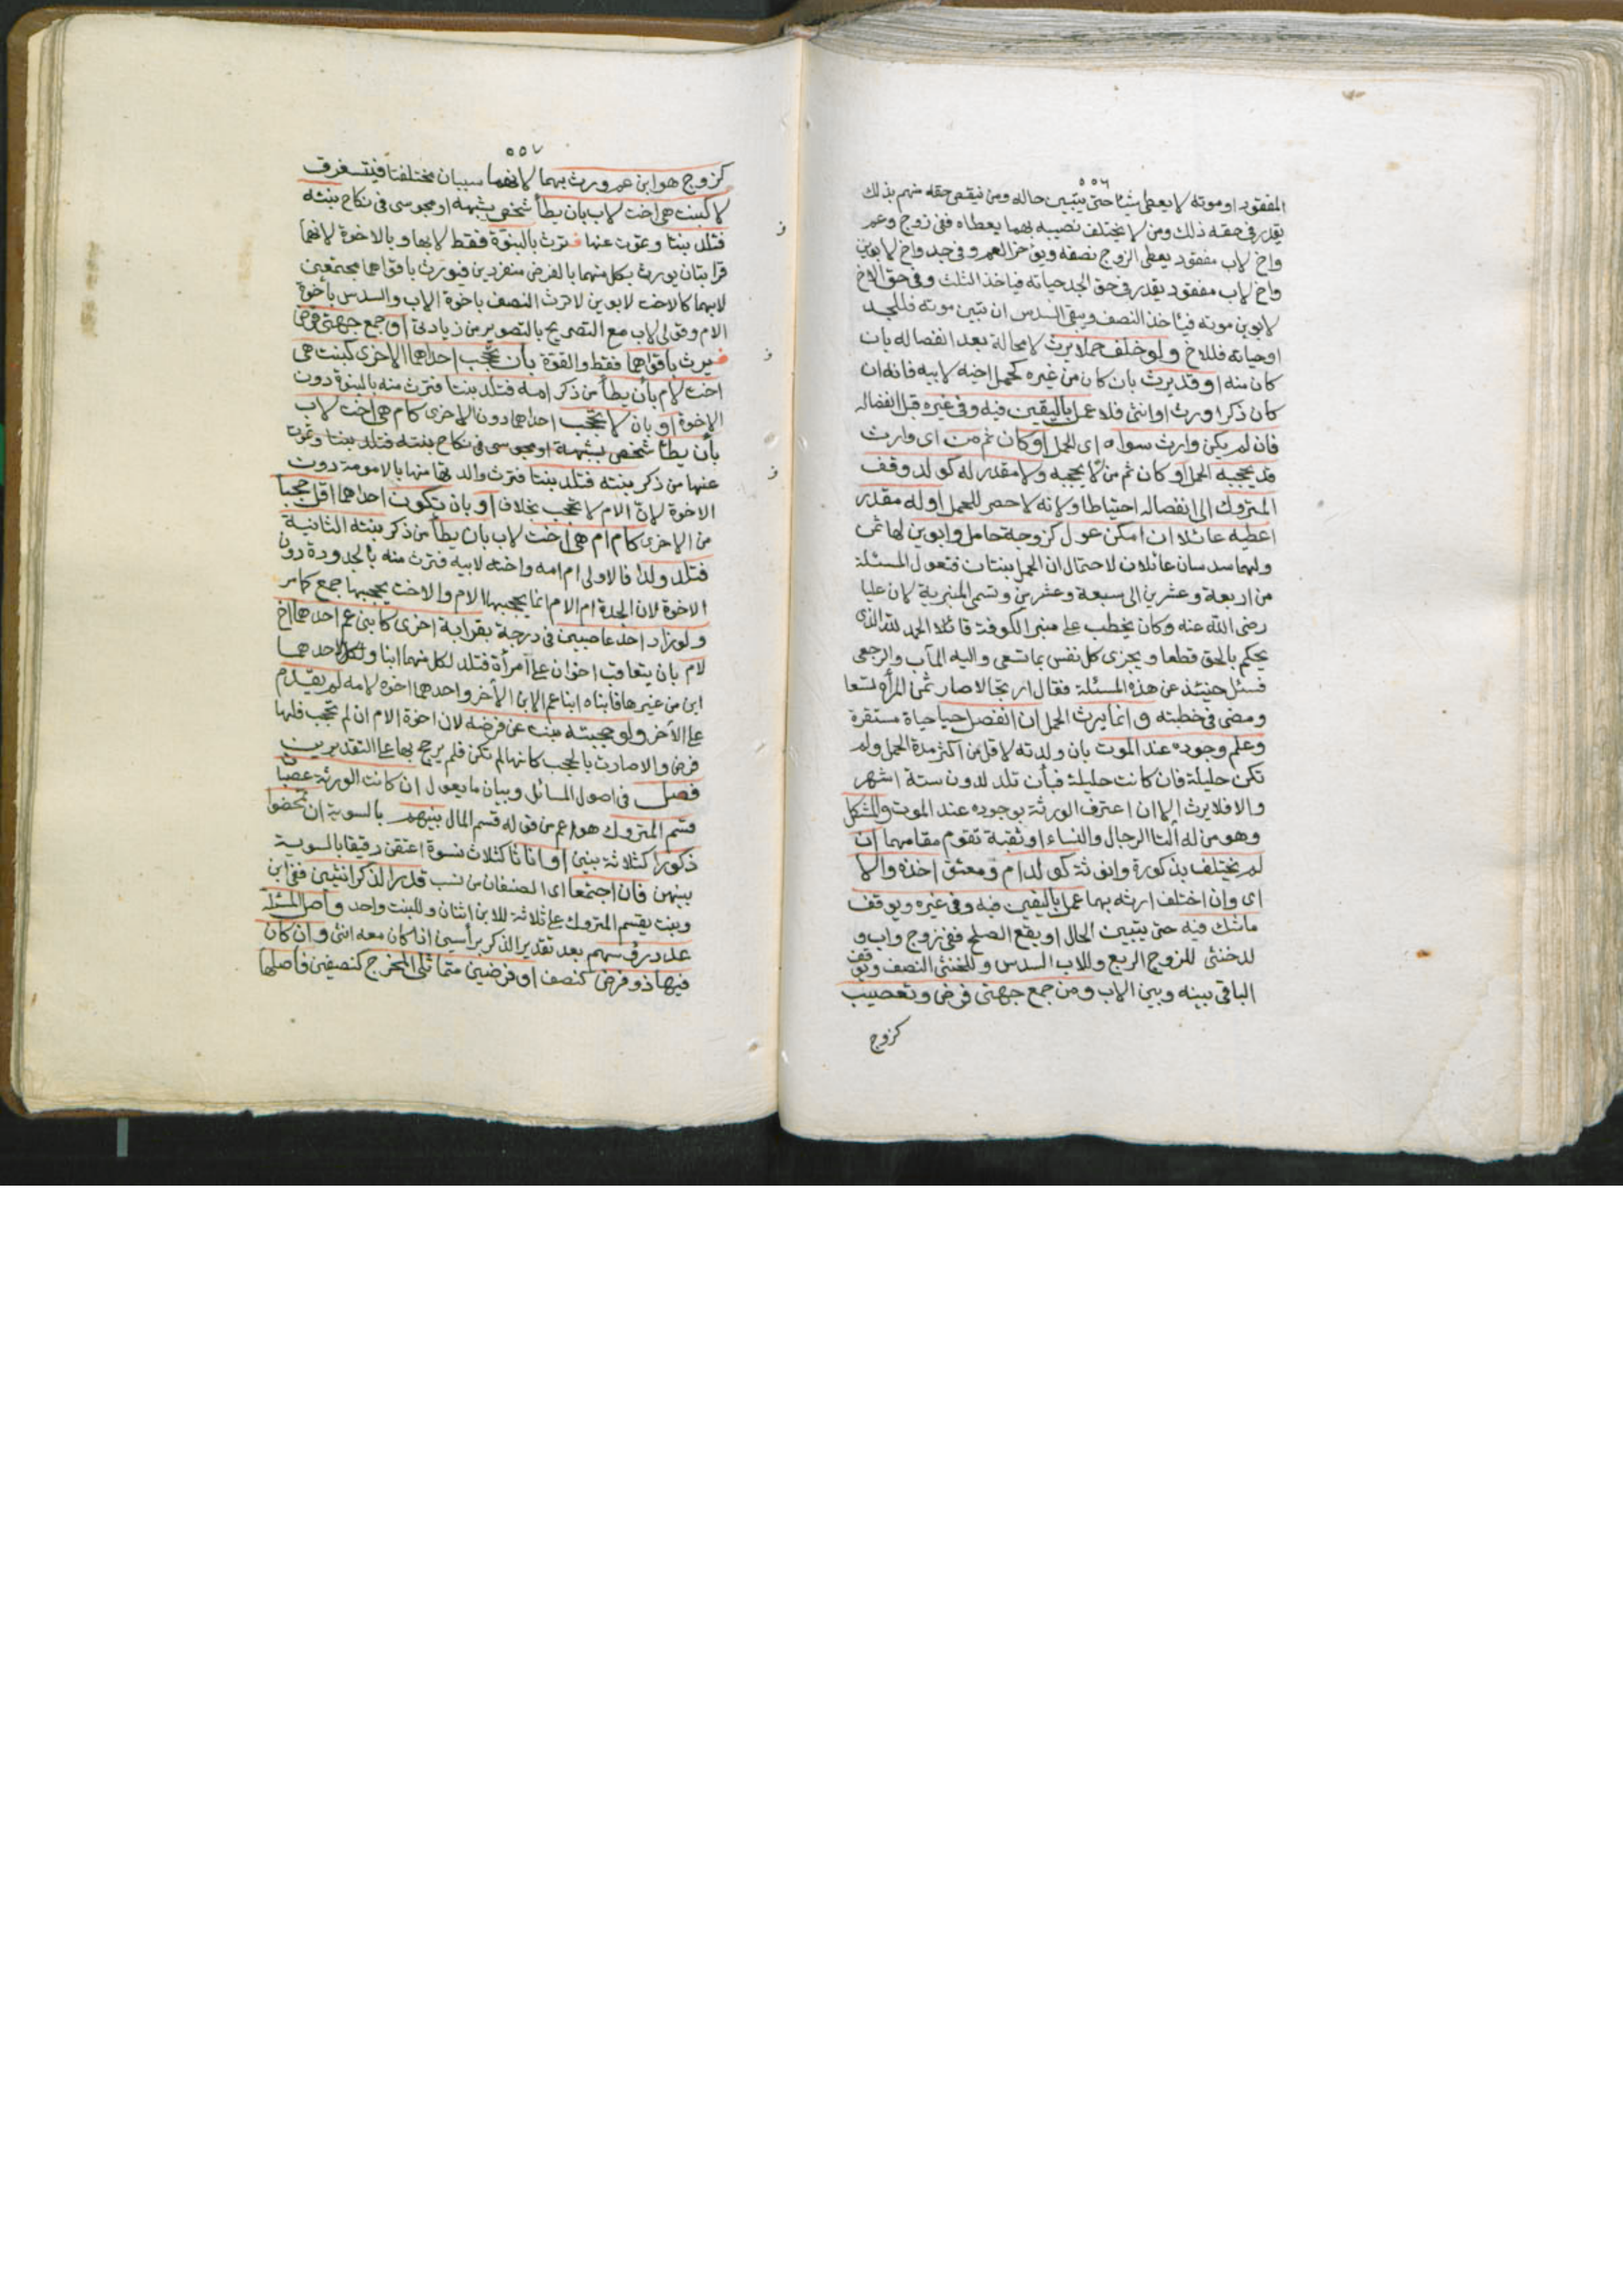 ٥٥٦
المفقود او موته لا يعطى شيئا حتى يتبين حاله ومن ينقص حقه منهم بذلك
يقدر في حقه ذلك ومن لا يختلف نصيبه بهما يعطاه ففي زوج وعم
واخ لاب مفقود يعطى الزوج نصفه ويؤخر العم وفي جد واخ لابوين
واخ لاب مفقود يقدر في حق الجد حياته فياخذ الثلث وفي حق الاخ
لابوين موته فياخذ النصف ويبقى السدس ان تبين موته فللجد
او حياته فللاخ ولو خلف حملا يرث لا محالة بعد انفصاله بان
كان منه او قد يرث بان كان من غيره كحمل اخيه لابيه فانه ان
كان ذكرا ورث او انثى فلا عمل باليقين فيه وفي غيره قبل انفصاله
فان لم يكن وارث سواه اى الحمل او كان ثم من اى وارث
قد يحجبه الحمل او كان ثم من لا يحجبه ولا مقدر له كولد وقف
المتروك الى انفصاله احتياطا ولانه لا حصر للحمل او له مقدر
اعطيه عائلا ان امكن عول كزوجة حامل وابوين لها ثمن
ولهما سدسان عائلان لاحتمال ان الحمل بنتان فتعول المسئلة
من اربعة وعشرين الى سبعة وعشرين وتسمى المنبرية لان عليا
رضى الله عنه وكان يخطب على منبر الكوفة قائلا الحمد لله الذى
يحكم بالحق قطعا ويجزى كل نفس بما تسعى واليه المآب والرجعى
فسئل حينئذ عن هذه المسئلة فقال ارتجالا صار ثمن المرأة تسعا
ومضى في خطبته وانما يرث الحمل ان انفصل حيا حياة مستقرة
وعلم وجوده عند الموت بان ولدته لاقل من اكثر مدة الحمل ولم
تكن حليلة فان كانت حليلة فبأن تلد لدون ستة اشهر
والا فلا يرث الا ان اعترف الورثة بوجوده عند الموت والمشكل
وهو من له آلتا الرجال والنساء او ثقبة تقوم مقامهما ان
لم يختلف بذكورة وانوثة كولد ام ومعتق اخذه والا
اى وان اختلف ارثه بهما عمل باليقين فيه وفي غيره ويوقف
ما شك فيه حتى يتبين الحال او يقع الصلح ففي زوج واب و
لد خنثى للزوج الربع وللاب السدس وللخنثى النصف ويوقف
الباقى بينه وبين الاب ومن جمع جهتى فرض وتعصيب
كزوج
٥٥٧
كزوج هو ابن عم ورث بهما لانهما سببان مختلفان فيستغرق
لا كبنت هى اخت لاب بان يطأ شخص بشبهة او مجوسى في نكاح بنته
فتلد بنتا وتموت عنها فترث بالبنوة فقط لا بها وبالاخوة لانهما
قرابتان يورث بكل منهما بالفرض منفردين فيورث باقواهما مجتمعين
لا بهما كالاخت لابوين لا ترث النصف باخوة الاب والسدس باخوة
الام وقولى لاب مع التصريح بالتصوير من زيادتى او جمع جهتى فرض
فيرث باقواهما فقط والقوة بأن تحجب احداهما الاخرى كبنت هى
اخت لام بأن يطأ من ذكر امه فتلد بنتا فترث منه بالبنوة دون
الاخوة او بان لا تحجب احداهما دون الاخرى كام هى اخت لاب
بأن يطأ شخص بشبهة او مجوسى في نكاح بنته فتلد بنتا وتموت
عنها من ذكر بنته فتلد بنتا فترث والدتها منها بالامومة دون
الاخوة لان الام لا تحجب بخلاف او بان تكون احداهما اقل حجبا
من الاخرى كام ام هى اخت لاب بان يطأ من ذكر بنته الثانية
فتلد ولدا فالاولى ام امه واخته لابيه فترث منه بالجدودة دون
الاخوة لان الجدة ام الام انما يحجبها الام والاخت يحجبها جمع كما مر
ولو زاد احد عاصبين في درجة بقرابة اخرى كابنى عم احدهما اخ
لام بان يتعاقب اخوان على امرأة فتلد لكل منهما ابنا ولاحدهما
ابن من غيرها فابناه ابنا عم الابن الآخر واحدهما اخوه لامه لم يقدم
على الآخر ولو حجبته بنت عن فرضه لان اخوة الام ان لم تحجب فلها
فرض والا صارت بالحجب كانها لم تكن فلم يرجح بها على التقديرين
فصل في اصول المسائل وبيان ما يعول ان كانت الورثة عصبات
قسم المتروك هو اعم من قوله قسم المال بينهم بالسوية ان تمحضوا
ذكورا كثلاثة بنين او اناثا كثلاث نسوة اعتقن رقيقا بالسوية
بينهن فان اجتمعا اى الصنفان من نسب قدر الذكر انثيين ففي ابن
وبنت يقسم المتروك على ثلاثة للابن اثنان وللبنت واحد واصل المسئلة
عدد رؤسهم بعد تقدير الذكر برأسين اذا كان معه انثى وان كان
فيها ذو فرض كنصف او فرضين متماثلى المخرج كنصفين فاصلها